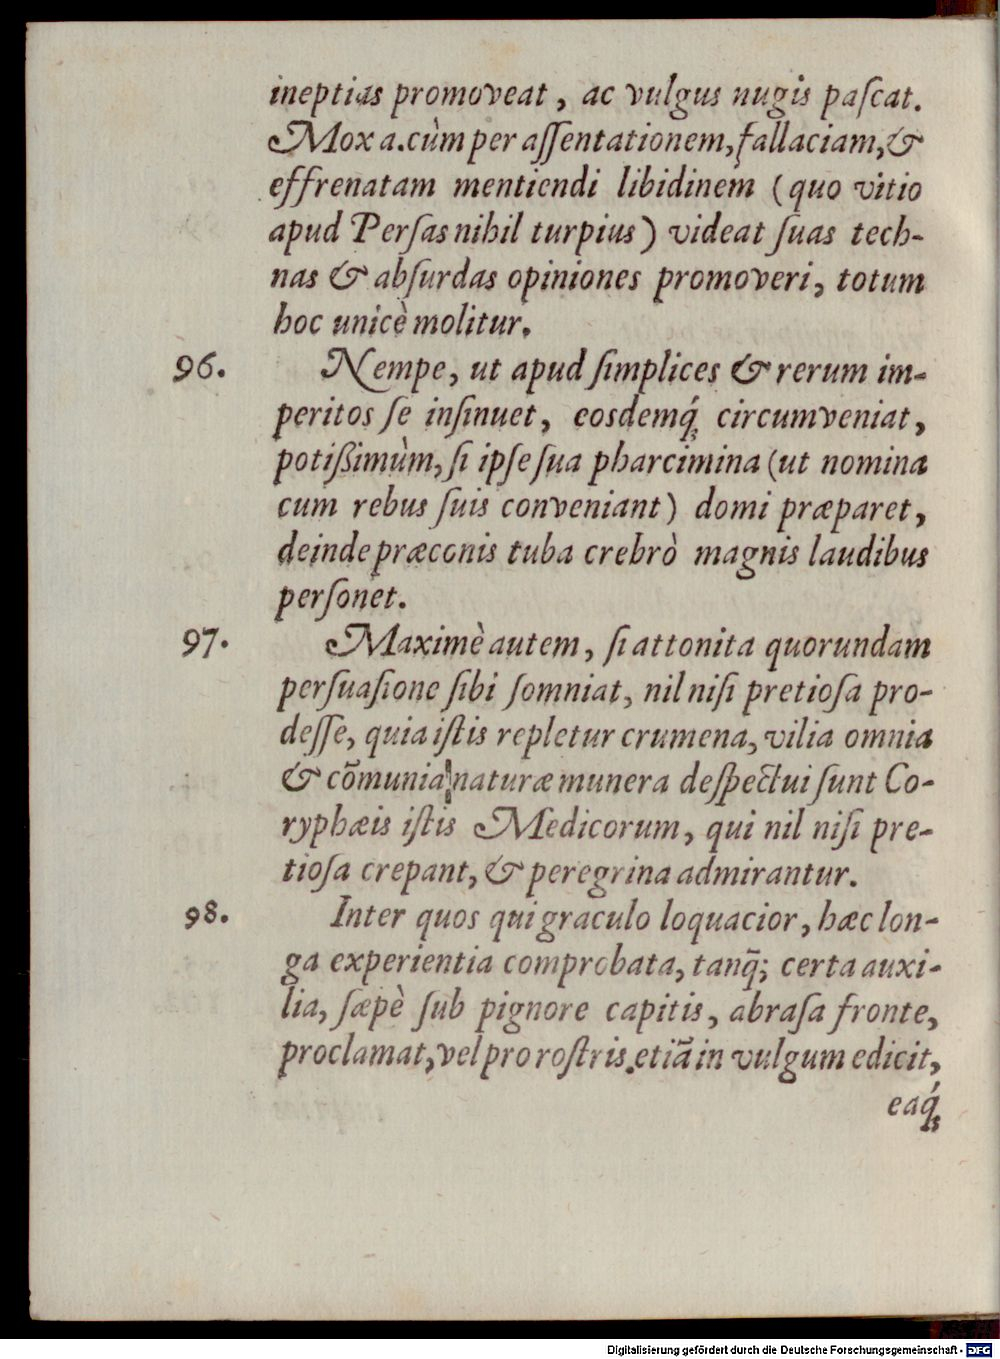 ineptias promoveat, ac vulgus nugis paſcat.
Mox a. cùm per aſſentationem, fallaciam, &
effrenatam mentiendi libidinem (quo vitio
apud Perſas nihil turpius) videat ſuas tech-
nas & abſurdas opiniones promoveri, totum
hoc unicè molitur.
96. Nempe, ut apud ſimplices & rerum im-
peritos ſe inſinuet, eosdemq́; circumveniat,
potißimùm, ſi ipſe ſua pharcimina (ut nomina
cum rebus ſuis conveniant) domi præparet,
deinde præconis tuba crebrò magnis laudibus
perſonet.
97. Maximè autem, ſi attonita quorundam
perſuaſione ſibi ſomniat, nil niſi pretioſa pro-
deſſe, quia iſtis repletur crumena, vilia omnia
& cõmunia naturæ munera deſpectui ſunt Co-
ryphæis iſtis Medicorum, qui nil niſi pre-
tioſa crepant, & peregrina admirantur.
98. Inter quos qui graculo loquacior, hæc lon-
ga experientia comprobata, tanq̃; certa auxi-
lia, ſæpè ſub pignore capitis, abraſa fronte,
proclamat, vel pro roſtris etiã in vulgum edicit,
eaq́;
Digitalisierung gefördert durch die Deutsche Forschungsgemeinschaft - DFG